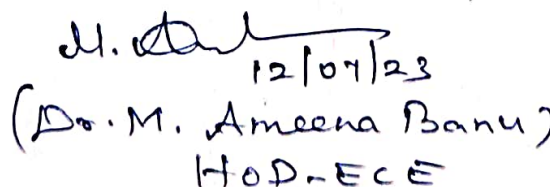 12/07/23
(Dr. M. Ameena Banu)
HOD-ECE